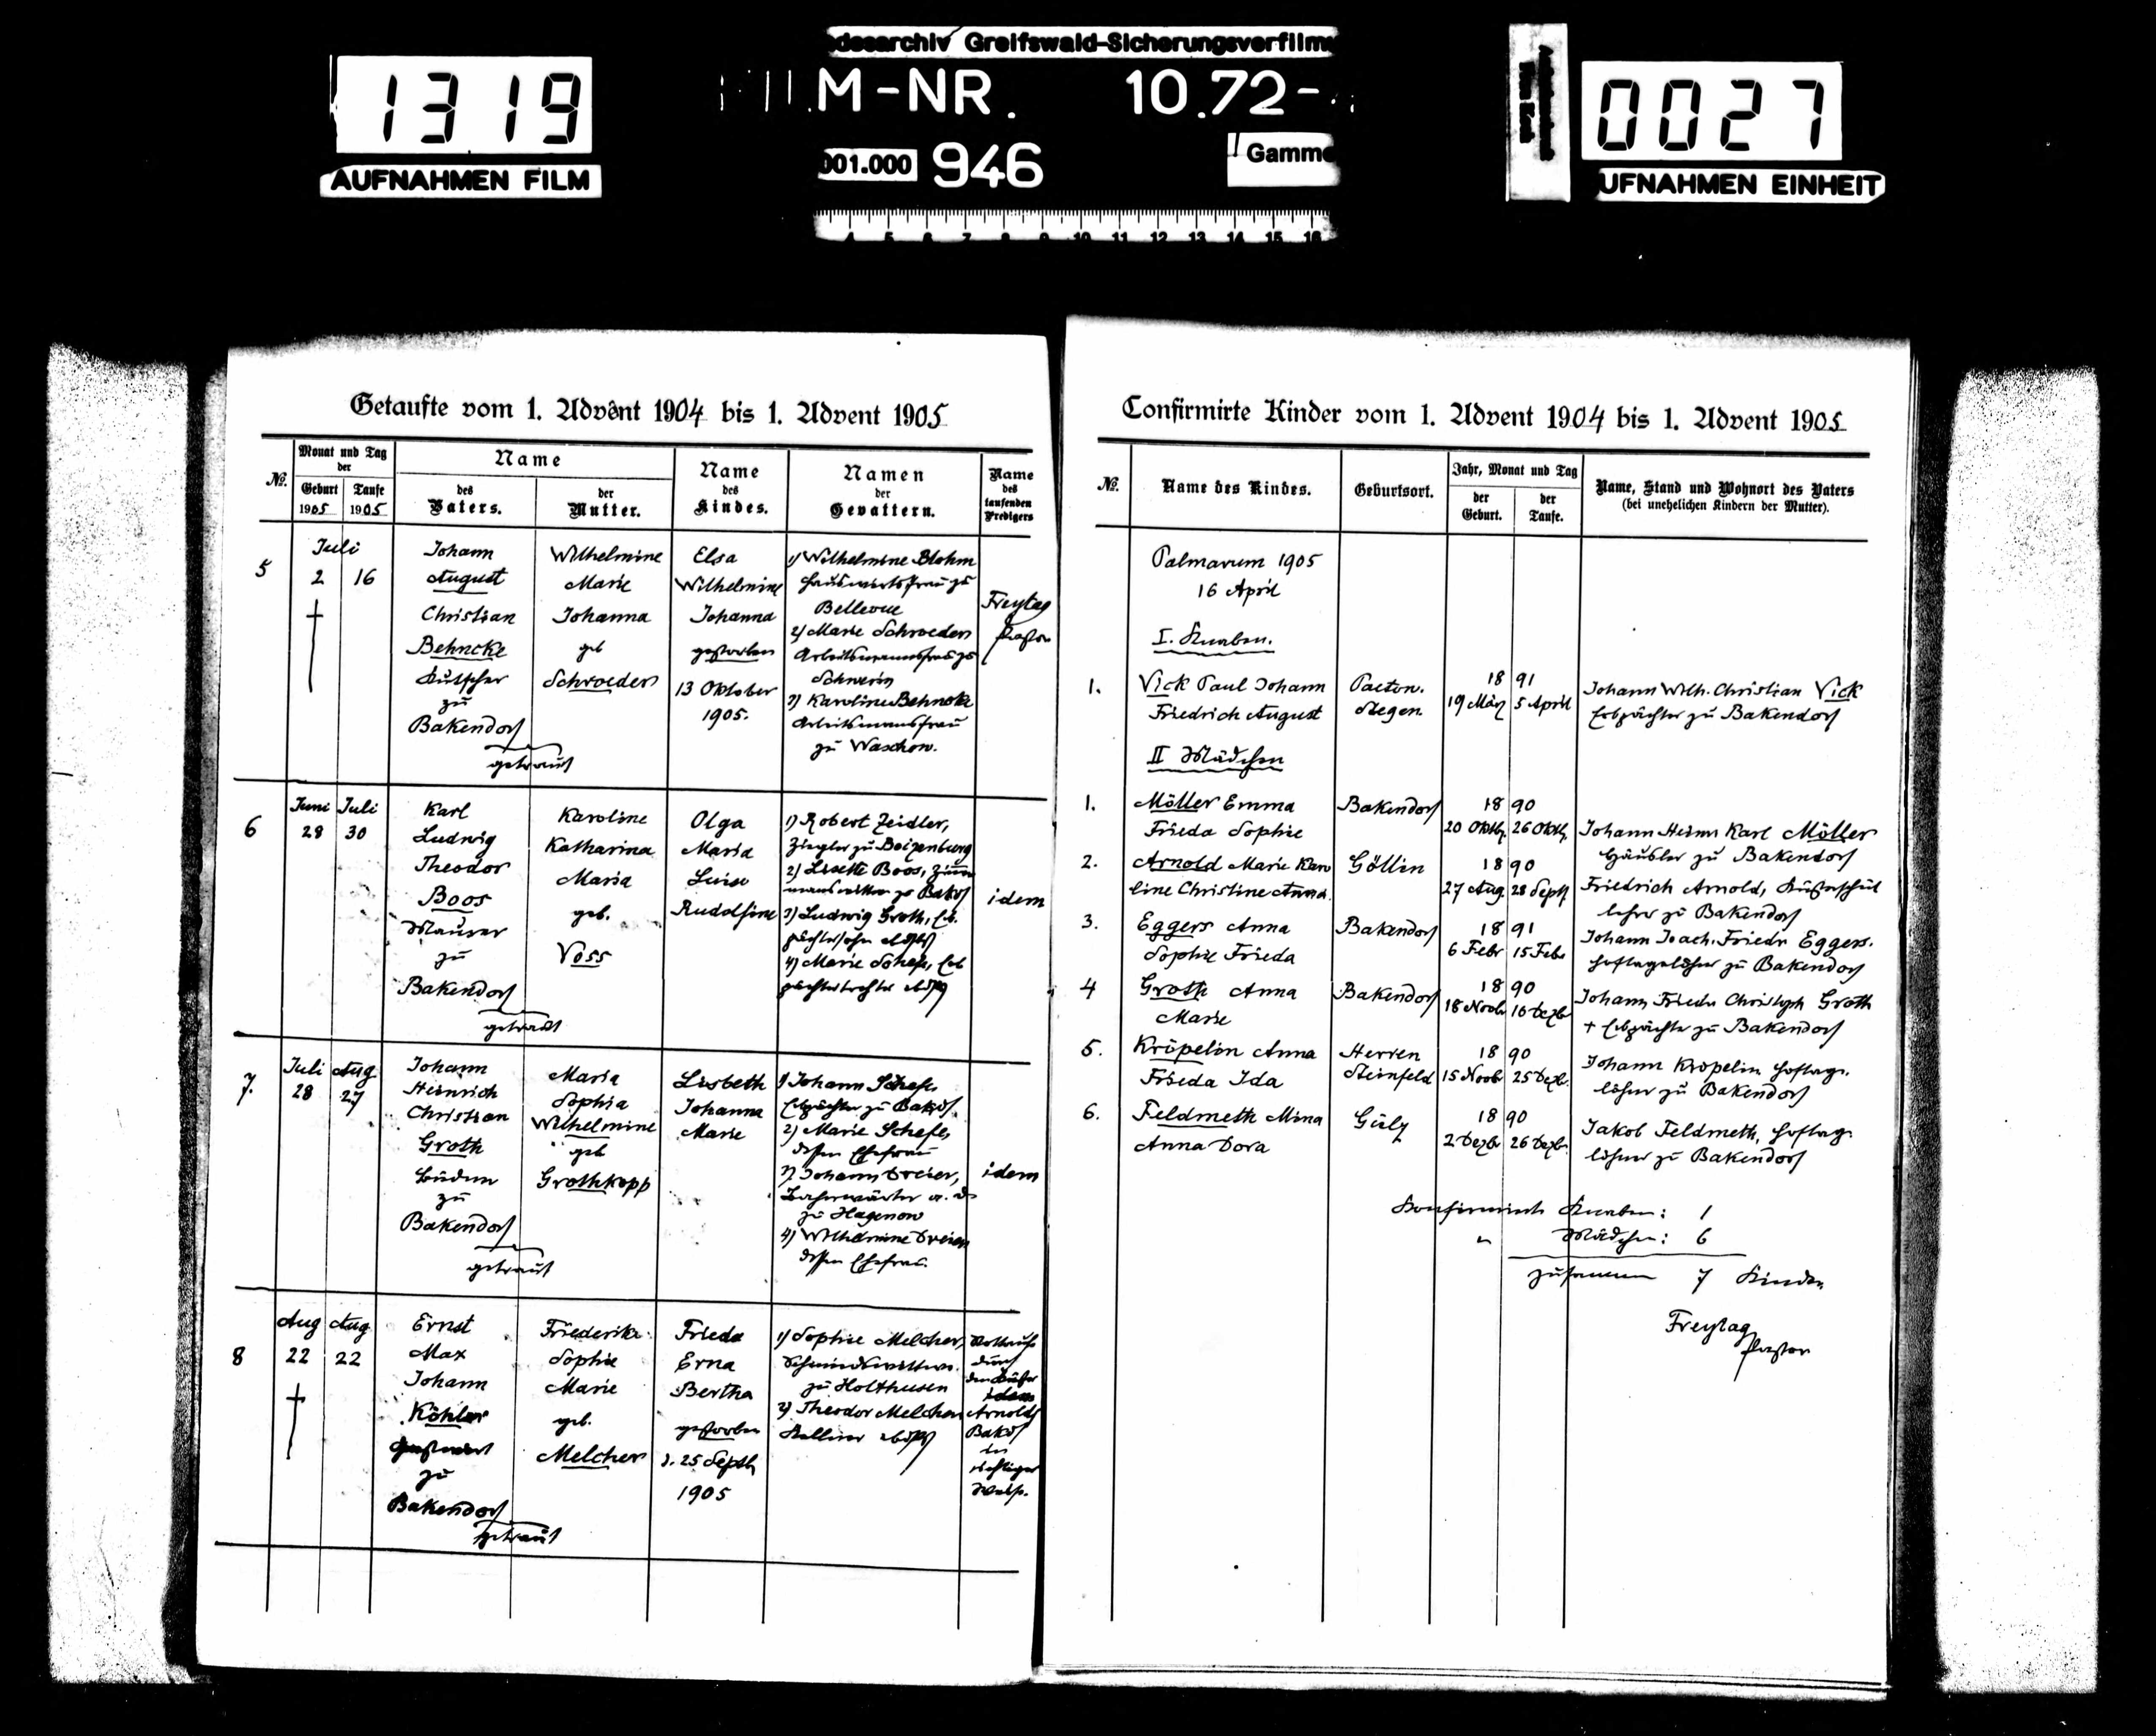 1319
AUFNAHMEN FILM
desarchiv Greifswald-Sicherungsverfilm
M-NR. 10.72-
001.000 946
Gamm
4 5 6 7 8 9 10 11 12 13 14 15 16
0027
UFNAHMEN EINHEIT
Getaufte vom 1. Advent 1904 bis 1. Advent 1905
No.
Monat und Tag
der
Geburt Taufe
1905 1905
Name
des
Vaters.
der
Mutter.
Name
des
Kindes.
Namen
der
Gevattern.
Name
des
taufenden
Predigers
5
Juli
2 16
†
Johann
August
Christian
Behncke
Kutscher
zu
Bakendorf
getraut
Wilhelmine
Marie
Johanna
geb
Schroeder
Elsa
Wilhelmine
Johanna
gestorben
13 Oktober
1905.
1) Wilhelmine Blohm
Hauswirtsfrau zu
Bellevue
2) Marie Schroeder
Arbeitsmannsfrau zu
Schwerin
3) Karoline Behncke
Arbeitsmannsfrau
zu Waschow.
Freytag
Pastor
6
Juni Juli
28 30
Karl
Ludwig
Theodor
Boos
Maurer
zu
Bakendorf
getraut
Karoline
Katharina
Maria
geb.
Voss
Olga
Maria
Luise
Rudolfine
1) Robert Zeidler,
Ziegler zu Boizenburg
2) Lisette Boos, Zimmer
mannswittwe zu Bakdf
3) Ludwig Groth, Erb
pächtersohn
4) Marie Schefe, Erb
pächtertochter
idem
7.
Juli Aug
28 27
Johann
Heinrich
Christian
Groth
Büdner
zu
Bakendorf
getraut
Maria
Sophia
Wilhelmine
geb
Grothkopp
Lisbeth
Johanna
Marie
1) Johann Schefe,
Erbpächter zu Bakdf.
2) Marie Schefe,
dessen Ehefrau
3) Johann Dreier,
a. D.
zu Hagenow
4) Wilhelmine Dreier
dessen Ehefrau.
idem
8
Aug Aug
22 22
†
Ernst
Max
Johann
Köhler
zu
Bakendorf
getraut
Friederike
Sophie
Marie
geb.
Melcher
Frieda
Erna
Bertha
gestorben
d. 25 Septb
1905
1) Sophie Melcher,
Schmiedewittwe
zu Holthusen
2) Theodor Melcher
Kellner
Nottaufe
durch
den Küster
idem
Arnold
Bakdf
in
richtiger
Weise.
Confirmirte Kinder vom 1. Advent 1904 bis 1. Advent 1905
No.
Name des Kindes.
Geburtsort.
Jahr, Monat und Tag
der
Geburt.
der
Taufe.
Name, Stand und Wohnort des Vaters
(bei unehelichen Kindern der Mutter).
Palmarum 1905
16 April
I. Knaben.
1. Vick Paul Johann Paeton. 18 91 Johann Wilh. Christian Vick
Friedrich August Stegen. 19 März 5 April Erbpächter zu Bakendorf
II Mädchen
1. Möller Emma Bakendorf 18 90
Frieda Sophie 20 Oktb. 26 Oktb. Johann Heinr Karl Möller
Häusler zu Bakendorf
2. Arnold Marie Karo Göllin 18 90
line Christine Anna 27 Aug. 28 Septb Friedrich Arnold, Küsterschul
lehrer zu Bakendorf
3. Eggers Anna Bakendorf 18 91 Johann Joach. Friedr Eggers.
Sophie Frieda 6 Febr 15 Febr Hoftagelöhner zu Bakendorf
4 Groth Anna Bakendorf 18 90 Johann Friedr Christoph Groth
Marie 18 Novbr 16 Dezbr + Erbpächter zu Bakendorf
5. Kröpelin Anna Herren 18 90 Johann Kröpelin Hoftage-
Frieda Ida Steinfeld 15 Novbr 25 Dezb. löhner zu Bakendorf
6. Feldmeth Mina Gülz 18 90 Jakob Feldmeth, Hoftage
Anna Dora 2 Dezbr 26 Dezbr. löhner zu Bakendorf
Konfirmirte Knaben: 1
" Mädchen: 6
zusammen 7 Kinder
Freytag
Pastor